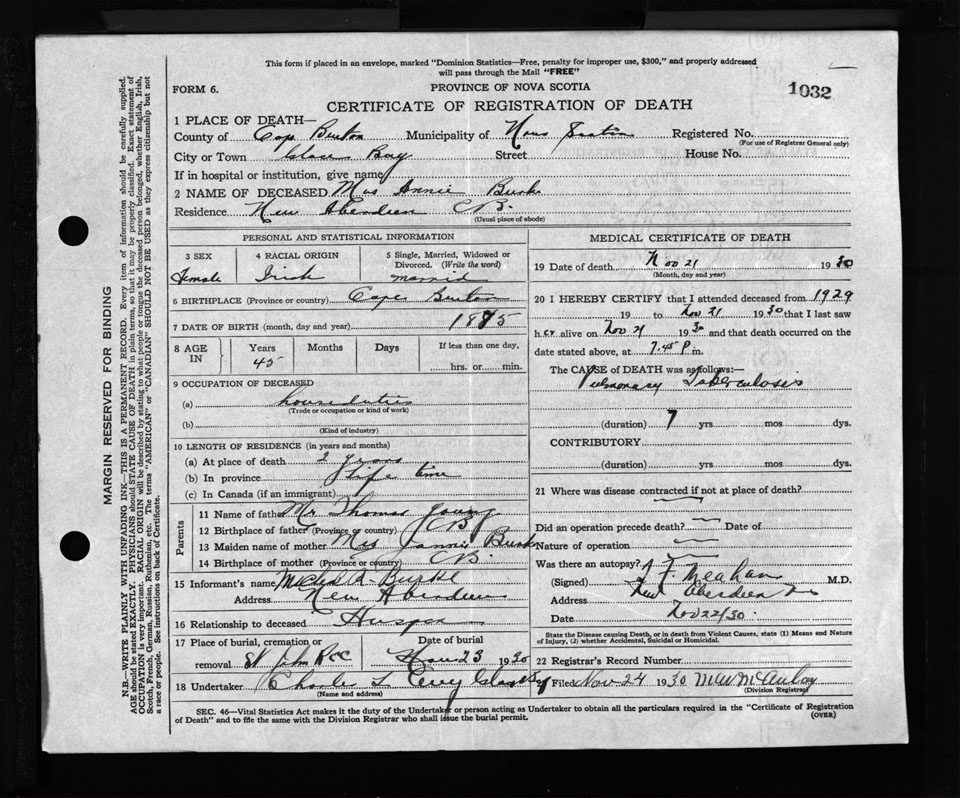 This form if placed in an envelope, marked "Dominion Statistics—Free, penalty for improper use, $300," and properly addressed
will pass through the Mail "FREE"
FORM 6. PROVINCE OF NOVA SCOTIA 1032
CERTIFICATE OF REGISTRATION OF DEATH
1 PLACE OF DEATH—
County of Cape Breton Municipality of Nova Scotia Registered No.
(For use of Registrar General only)
City or Town Glace Bay Street House No.
If in hospital or institution, give name
2 NAME OF DECEASED Mrs Annie Burke
Residence New Aberdeen CB.
(Usual place of abode)
PERSONAL AND STATISTICAL INFORMATION
3 SEX 4 RACIAL ORIGIN 5 Single, Married, Widowed or Divorced. (Write the word)
Female Irish married
6 BIRTHPLACE (Province or country) Cape Breton
7 DATE OF BIRTH (month, day and year) 1885
8 AGE IN Years Months Days If less than one day,
45 hrs. or min.
9 OCCUPATION OF DECEASED
(a) house duties
(Trade or occupation or kind of work)
(b)
(Kind of industry)
10 LENGTH OF RESIDENCE (in years and months)
(a) At place of death 2 years
(b) In province Life time
(c) In Canada (if an immigrant)
Parents
11 Name of father Mr Thomas Young
12 Birthplace of father (Province or country) CB
13 Maiden name of mother Mrs Burke
14 Birthplace of mother (Province or country) CB
15 Informant's name Burke
Address New Aberdeen
16 Relationship to deceased
17 Place of burial, cremation or Date of burial
removal St John 23 1930
18 Undertaker Charles L Curry Glace Bay
(Name and address)
MEDICAL CERTIFICATE OF DEATH
19 Date of death Nov 21 1930
(Month, day and year)
20 I HEREBY CERTIFY that I attended deceased from 1929
19 to Nov 21 1930 that I last saw
h er alive on Nov 21 1930 and that death occurred on
date stated above, at 7.45 P m.
The CAUSE of DEATH was as follows:—
Pulmonary Tuberculosis
(duration) 7 yrs mos dys.
CONTRIBUTORY
(duration) yrs. mos. dys.
21 Where was disease contracted if not at place of death?
Did an operation precede death? Date of
Nature of operation
Was there an autopsy?
(Signed) Meahan M.D.
Address New Aberdeen
Date Nov 22/30
State the Disease causing Death, or in death from Violent Causes, state (1) Means and Nature
of Injury, (2) whether Accidental, Suicidal or Homicidal.
22 Registrar's Record Number
Filed Nov 24 1930 McAulay
(Division Registrar)
SEC. 46—Vital Statistics Act makes it the duty of the Undertaker or person acting as Undertaker to obtain all the particulars required in the "Certificate of Registration
of Death" and to file the same with the Division Registrar who shall issue the burial permit.
(OVER)
MARGIN RESERVED FOR BINDING
N.B.—WRITE PLAINLY WITH UNFADING INK—THIS IS A PERMANENT RECORD. Every item of information should be carefully supplied.
AGE should be stated EXACTLY. PHYSICIANS should STATE CAUSE OF DEATH in plain terms, so that it may be properly classified. Exact statement of
OCCUPATION is very important. RACIAL ORIGIN will be described by stating to what people or tongue the deceased person belonged, whether English, Irish,
Scotch, French, German, Russian, Ruthenian, etc. The terms "AMERICAN" or "CANADIAN" SHOULD NOT BE USED, as they express citizenship but not
a race or people. See instructions on back of Certificate.